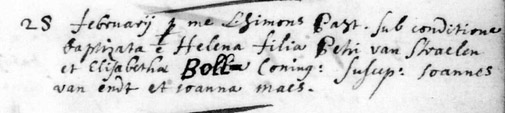 28 februarij p me Simons Past. sub conditione
baptizata e Helena filia Petri van Straelen
et Elisabetha Bolla Coning: Suscep: Joannes
van endt et Joanna maes.